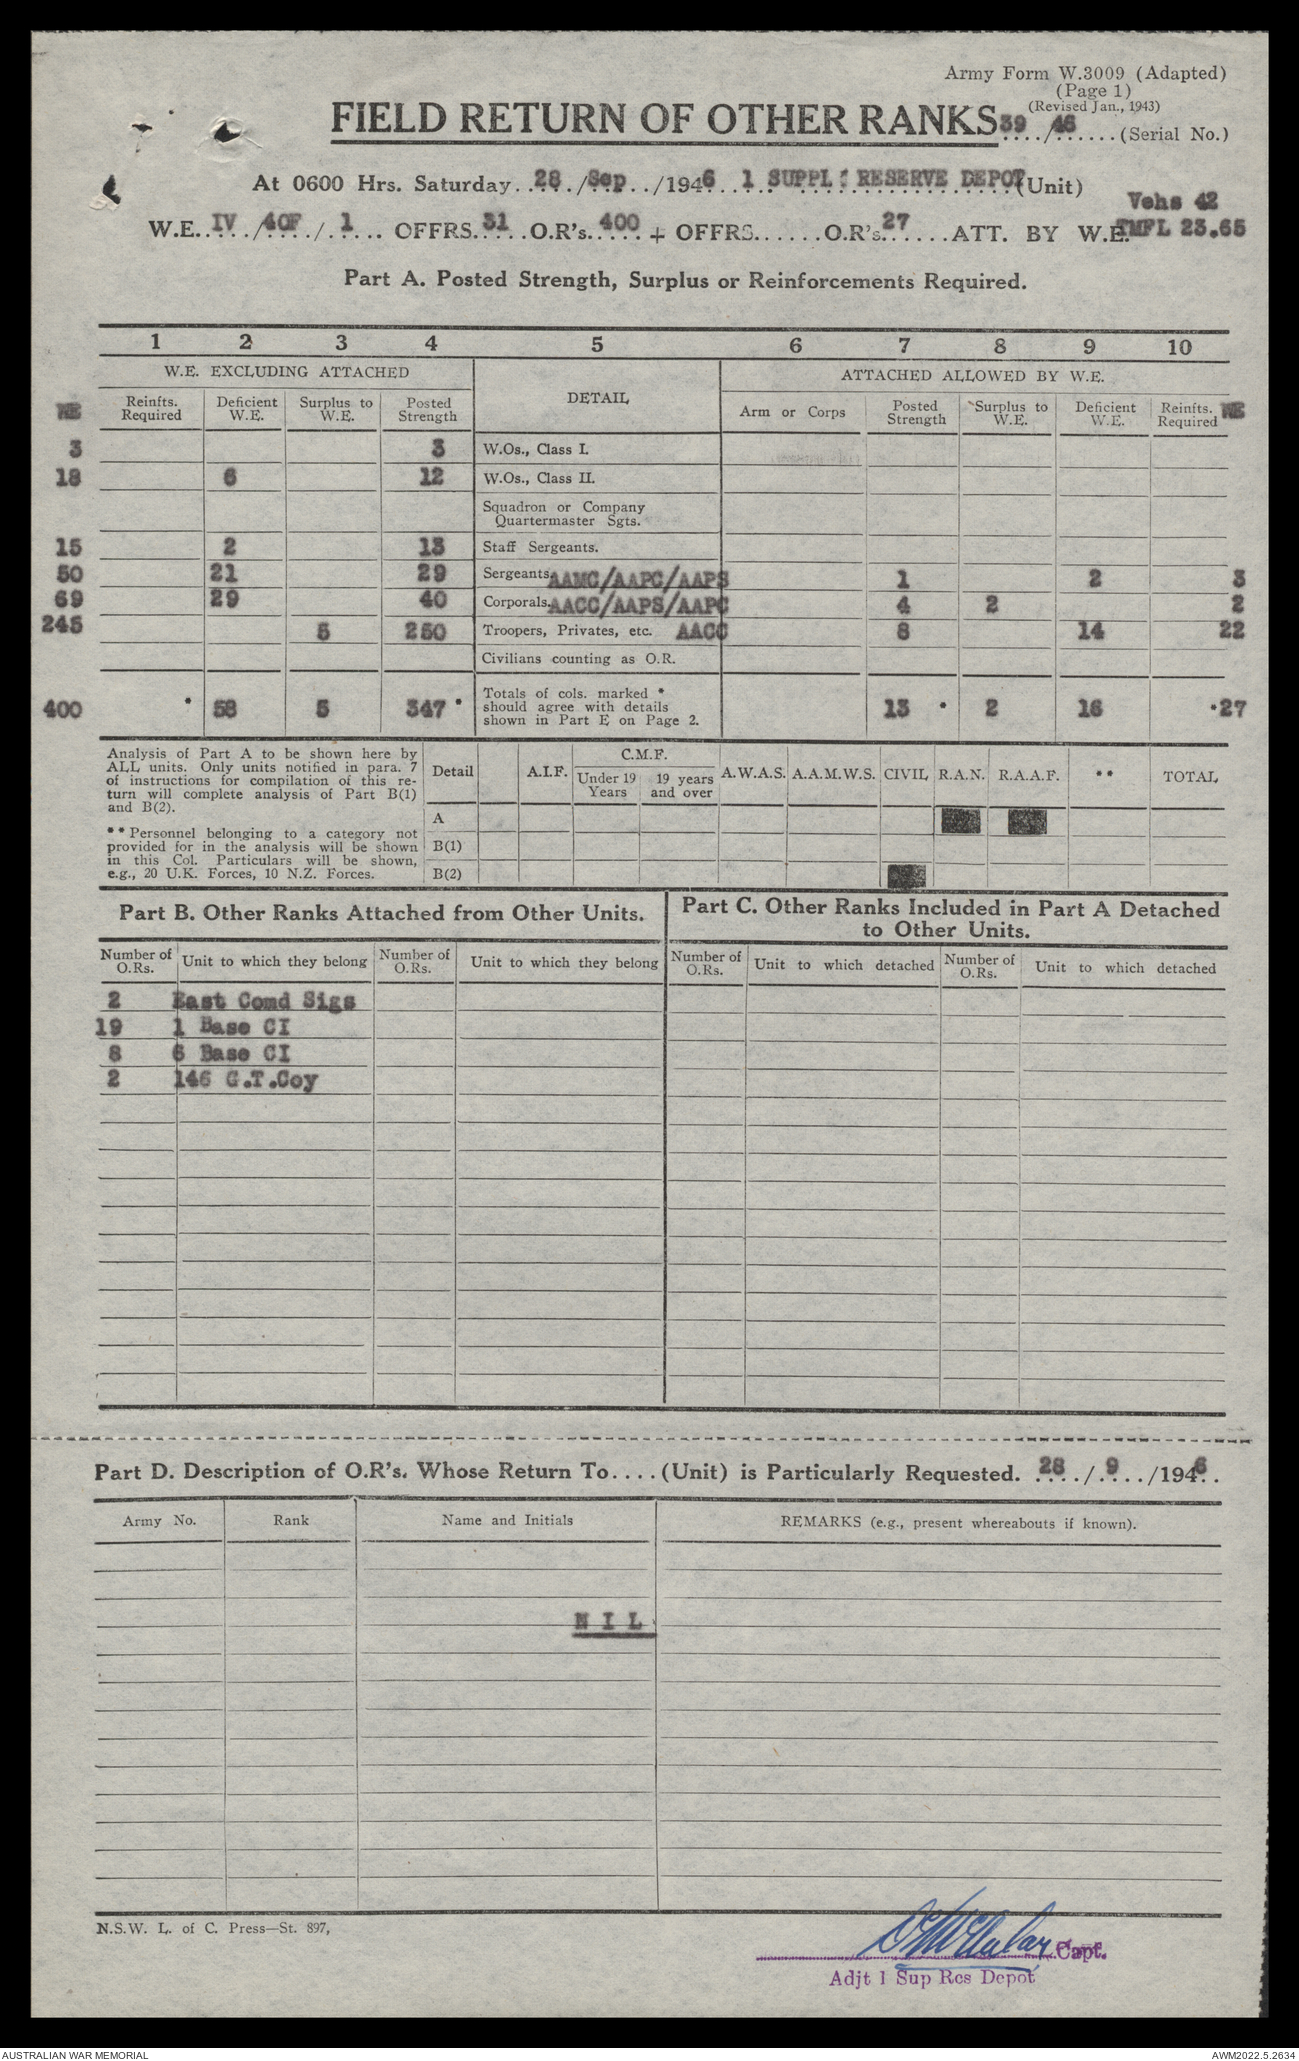 Army Form W.3009 (Adapted)
(Page 1)
(Revised Jan., 1943)
FIELD RETURN OF OTHER RANKS 39/46 (Serial No.)
At 0600 Hrs. Saturday 28/Sep/1946 1 SUPPLY RESERVE DEPOT (Unit)
Vehs 42
W.E. IV/40F/1 OFFRS. 31 O.R's. 400 + OFFRS...... O.R's. 27 ATT. BY W.E. TMFL 23.65
Part A. Posted Strength, Surplus or Reinforcements Required.
1 2 3 4 5 6 7 8 9 10
W.E. EXCLUDING ATTACHED DETAIL ATTACHED ALLOWED BY W.E.
WE Reinfts. Required Deficient W.E. Surplus to W.E. Posted Strength Arm or Corps Posted Strength Surplus to W.E. Deficient W.E. Reinfts. Required WE
3 3 W.Os., Class I.
18 6 12 W.Os., Class II.
Squadron or Company
Quartermaster Sgts.
15 2 13 Staff Sergeants.
50 21 29 Sergeants AAMC/AAPC/AAPS 1 2 3
69 29 40 Corporals. AACC/AAPS/AAPC 4 2 2
245 5 250 Troopers, Privates, etc. AACC 8 14 22
Civilians counting as O.R.
400 * 58 5 347 * Totals of cols. marked * should agree with details shown in Part E on Page 2. 13 * 2 16 *27
Analysis of Part A to be shown here by
ALL units. Only units notified in para. 7
of instructions for compilation of this re-
turn will complete analysis of Part B(1)
and B(2).
** Personnel belonging to a category not
provided for in the analysis will be shown
in this Col. Particulars will be shown,
e.g., 20 U.K. Forces, 10 N.Z. Forces.
Detail A.I.F. C.M.F. Under 19 Years 19 years and over A.W.A.S. A.A.M.W.S. CIVIL R.A.N. R.A.A.F. ** TOTAL
A
B(1)
B(2)
Part B. Other Ranks Attached from Other Units.
Part C. Other Ranks Included in Part A Detached
to Other Units.
Number of O.Rs. Unit to which they belong Number of O.Rs. Unit to which they belong Number of O.Rs. Unit to which detached Number of O.Rs. Unit to which detached
2 East Comd Sigs
19 1 Base CI
8 6 Base CI
2 146 G.T.Coy
Part D. Description of O.R's. Whose Return To....(Unit) is Particularly Requested. 28/9/1946
Army No. Rank Name and Initials REMARKS (e.g., present whereabouts if known).
N I L
N.S.W. L. of C. Press—St. 897,
Capt.
Adjt 1 Sup Res Depot
AUSTRALIAN WAR MEMORIAL
AWM2022.5.2634